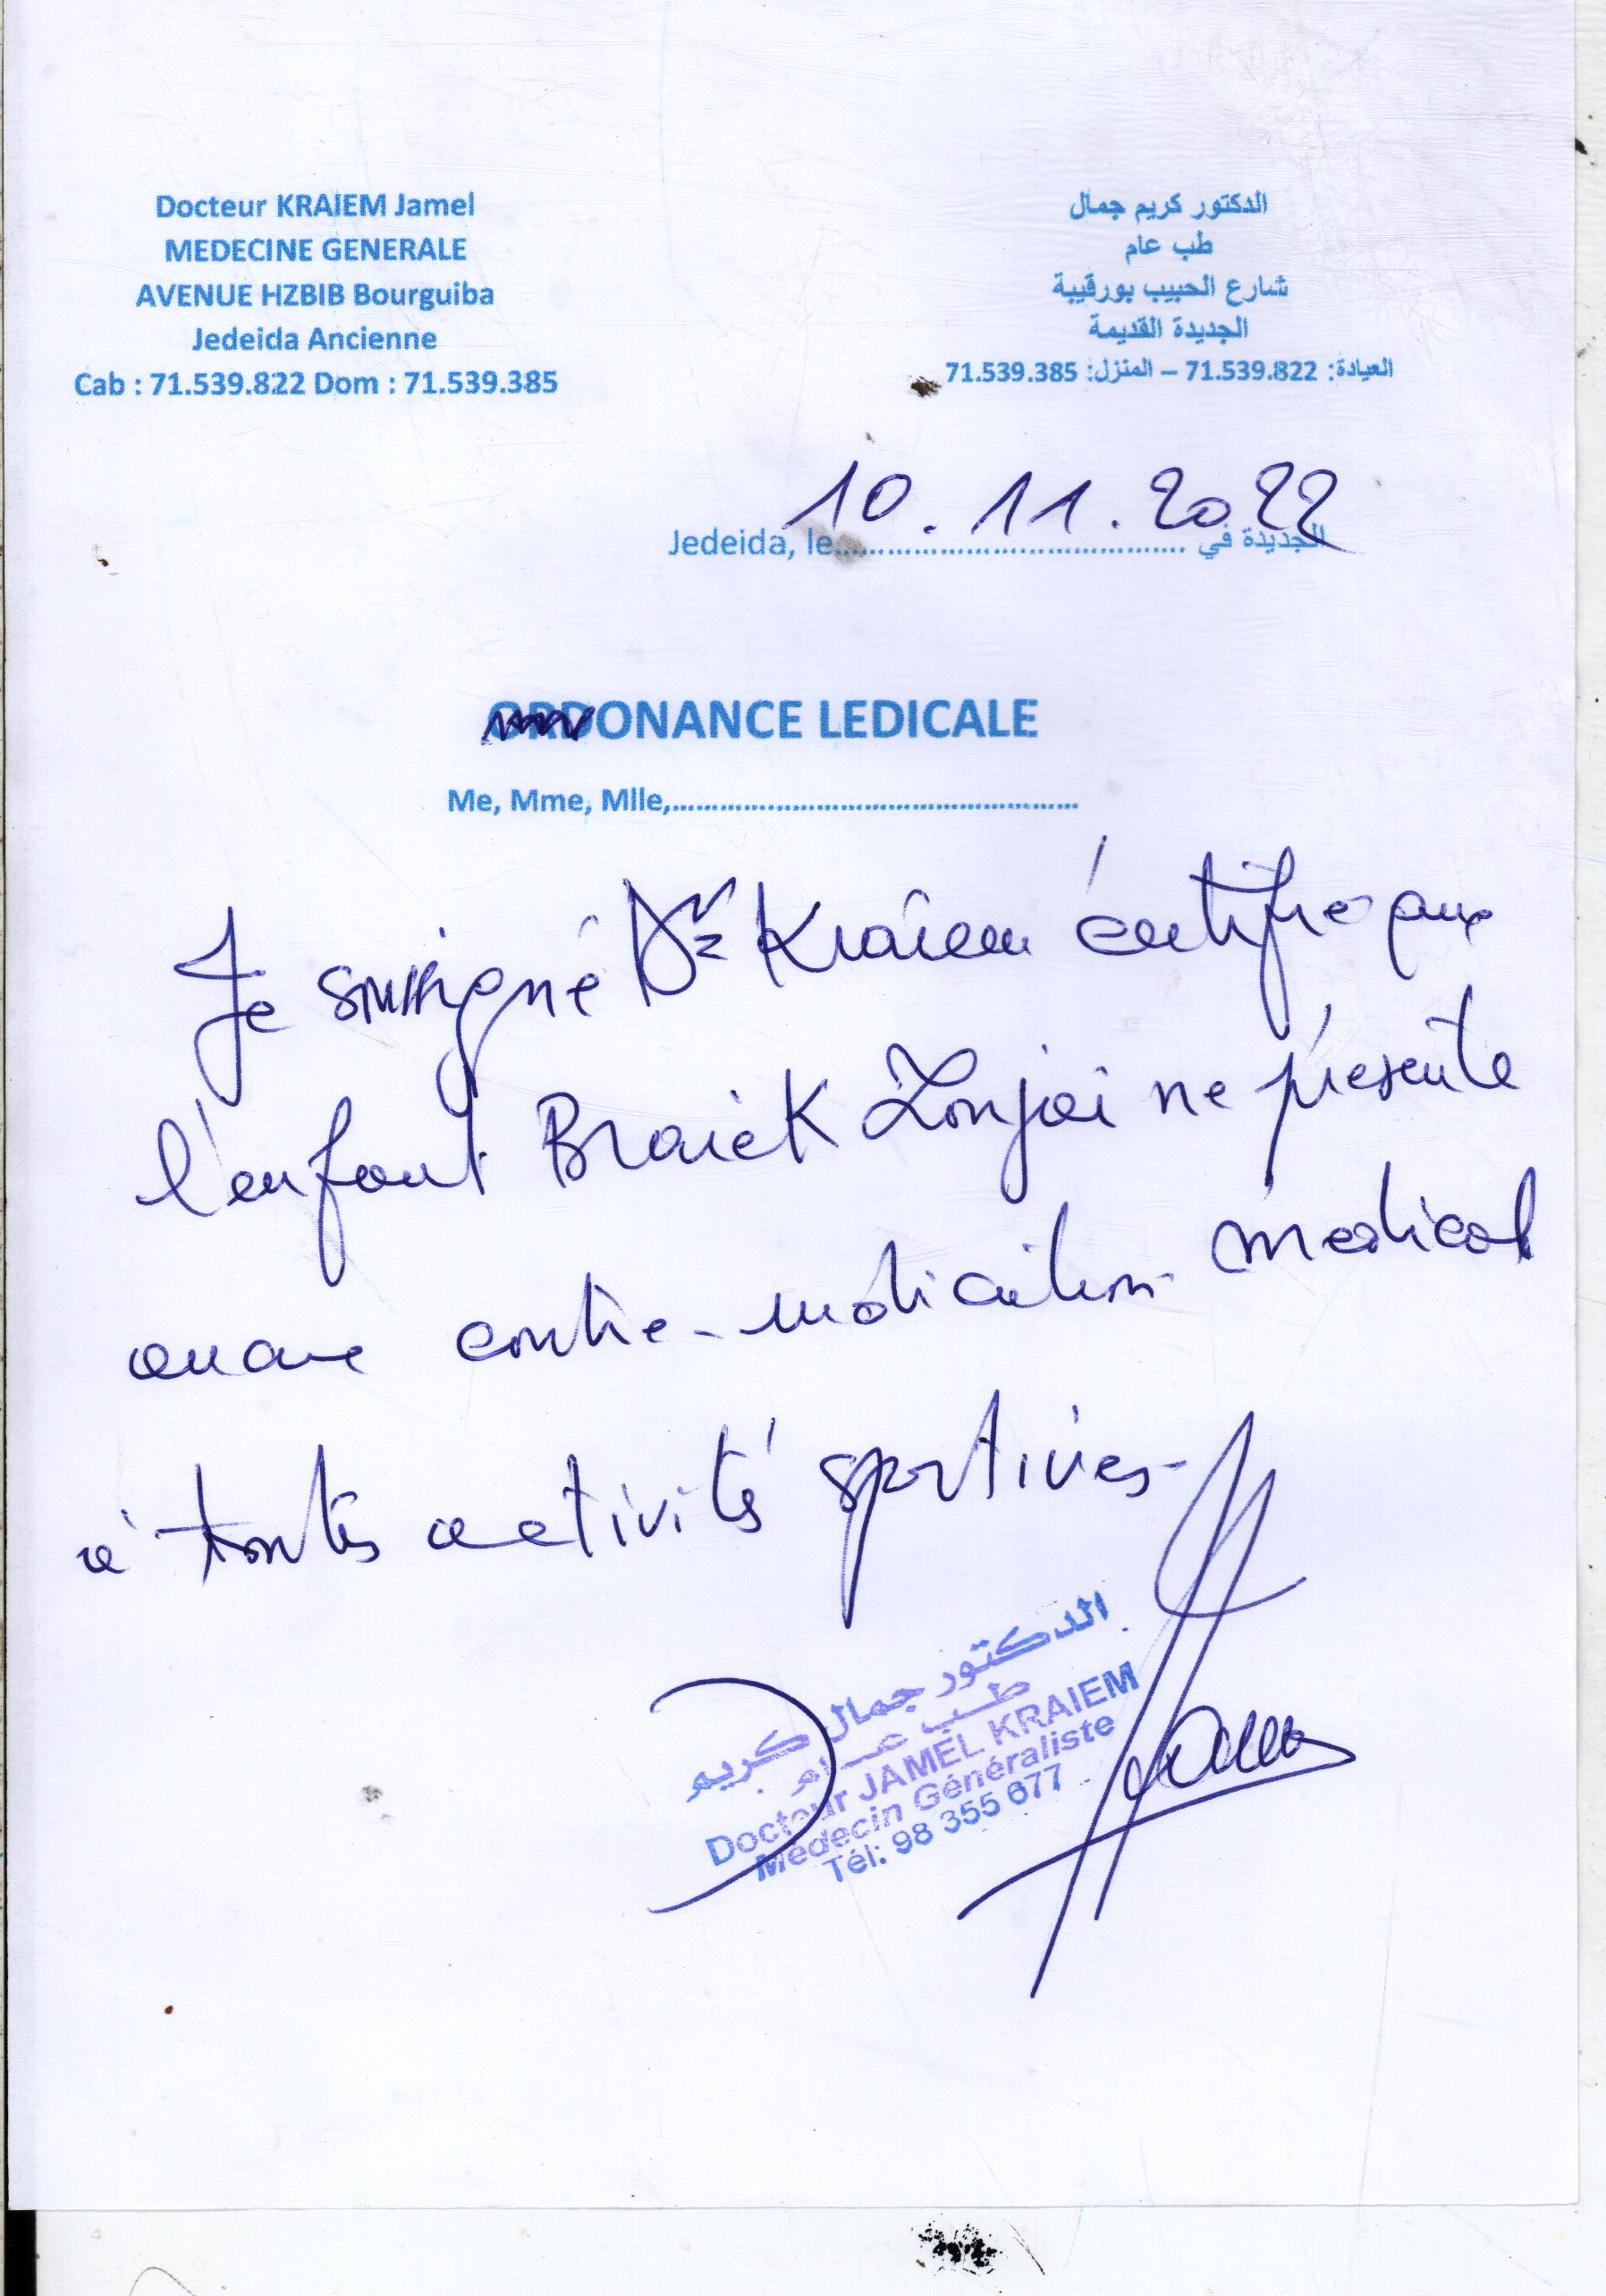 Docteur KRAIEM Jamel
MEDECINE GENERALE
AVENUE HZBIB Bourguiba
Jedeida Ancienne
Cab : 71.539.822 Dom : 71.539.385
الدكتور كريم جمال
طب عام
شارع الحبيب بورقيبة
الجديدة القديمة
العيادة: 71.539.822 – المنزل: 71.539.385
10.11.2022
Jedeida, le.......................................... الجديدة في
ORDONANCE LEDICALE
Me, Mme, Mlle,..................................................
Je soussigné Dr Kraiem certifie que
l'enfant Braiek ne présente
aucune contre-indication médical
à toutes activités sportives-
الدكتور جمال كريم
طب عام
Docteur JAMEL KRAIEM
Médecin Généraliste
Tél: 98 355 677